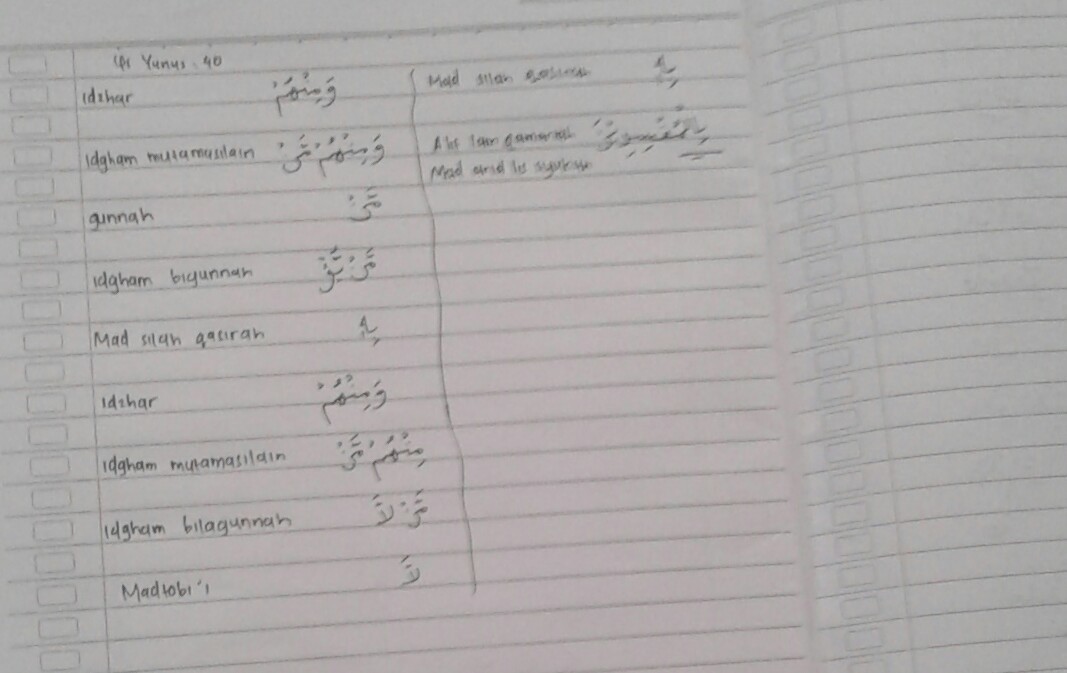 Qs Yunus : 40
Idzhar وَمِنْهُمْ
Idgham mutamasilain وَمِنْهُمْ مَّنْ
gunnah مَّنْ
Idgham bigunnah مَّنْ يُّؤْ
Mad silah qasirah بِهٖ
Idzhar وَمِنْهُمْ
Idgham mutamasilain مِنْهُمْ مَّنْ
Idgham bilagunnah مَّنْ لَّا
Madtobi'i لَا
Mad silah qasirah بِهٖ
Alif lam qamariah
Mad arid lis sukun